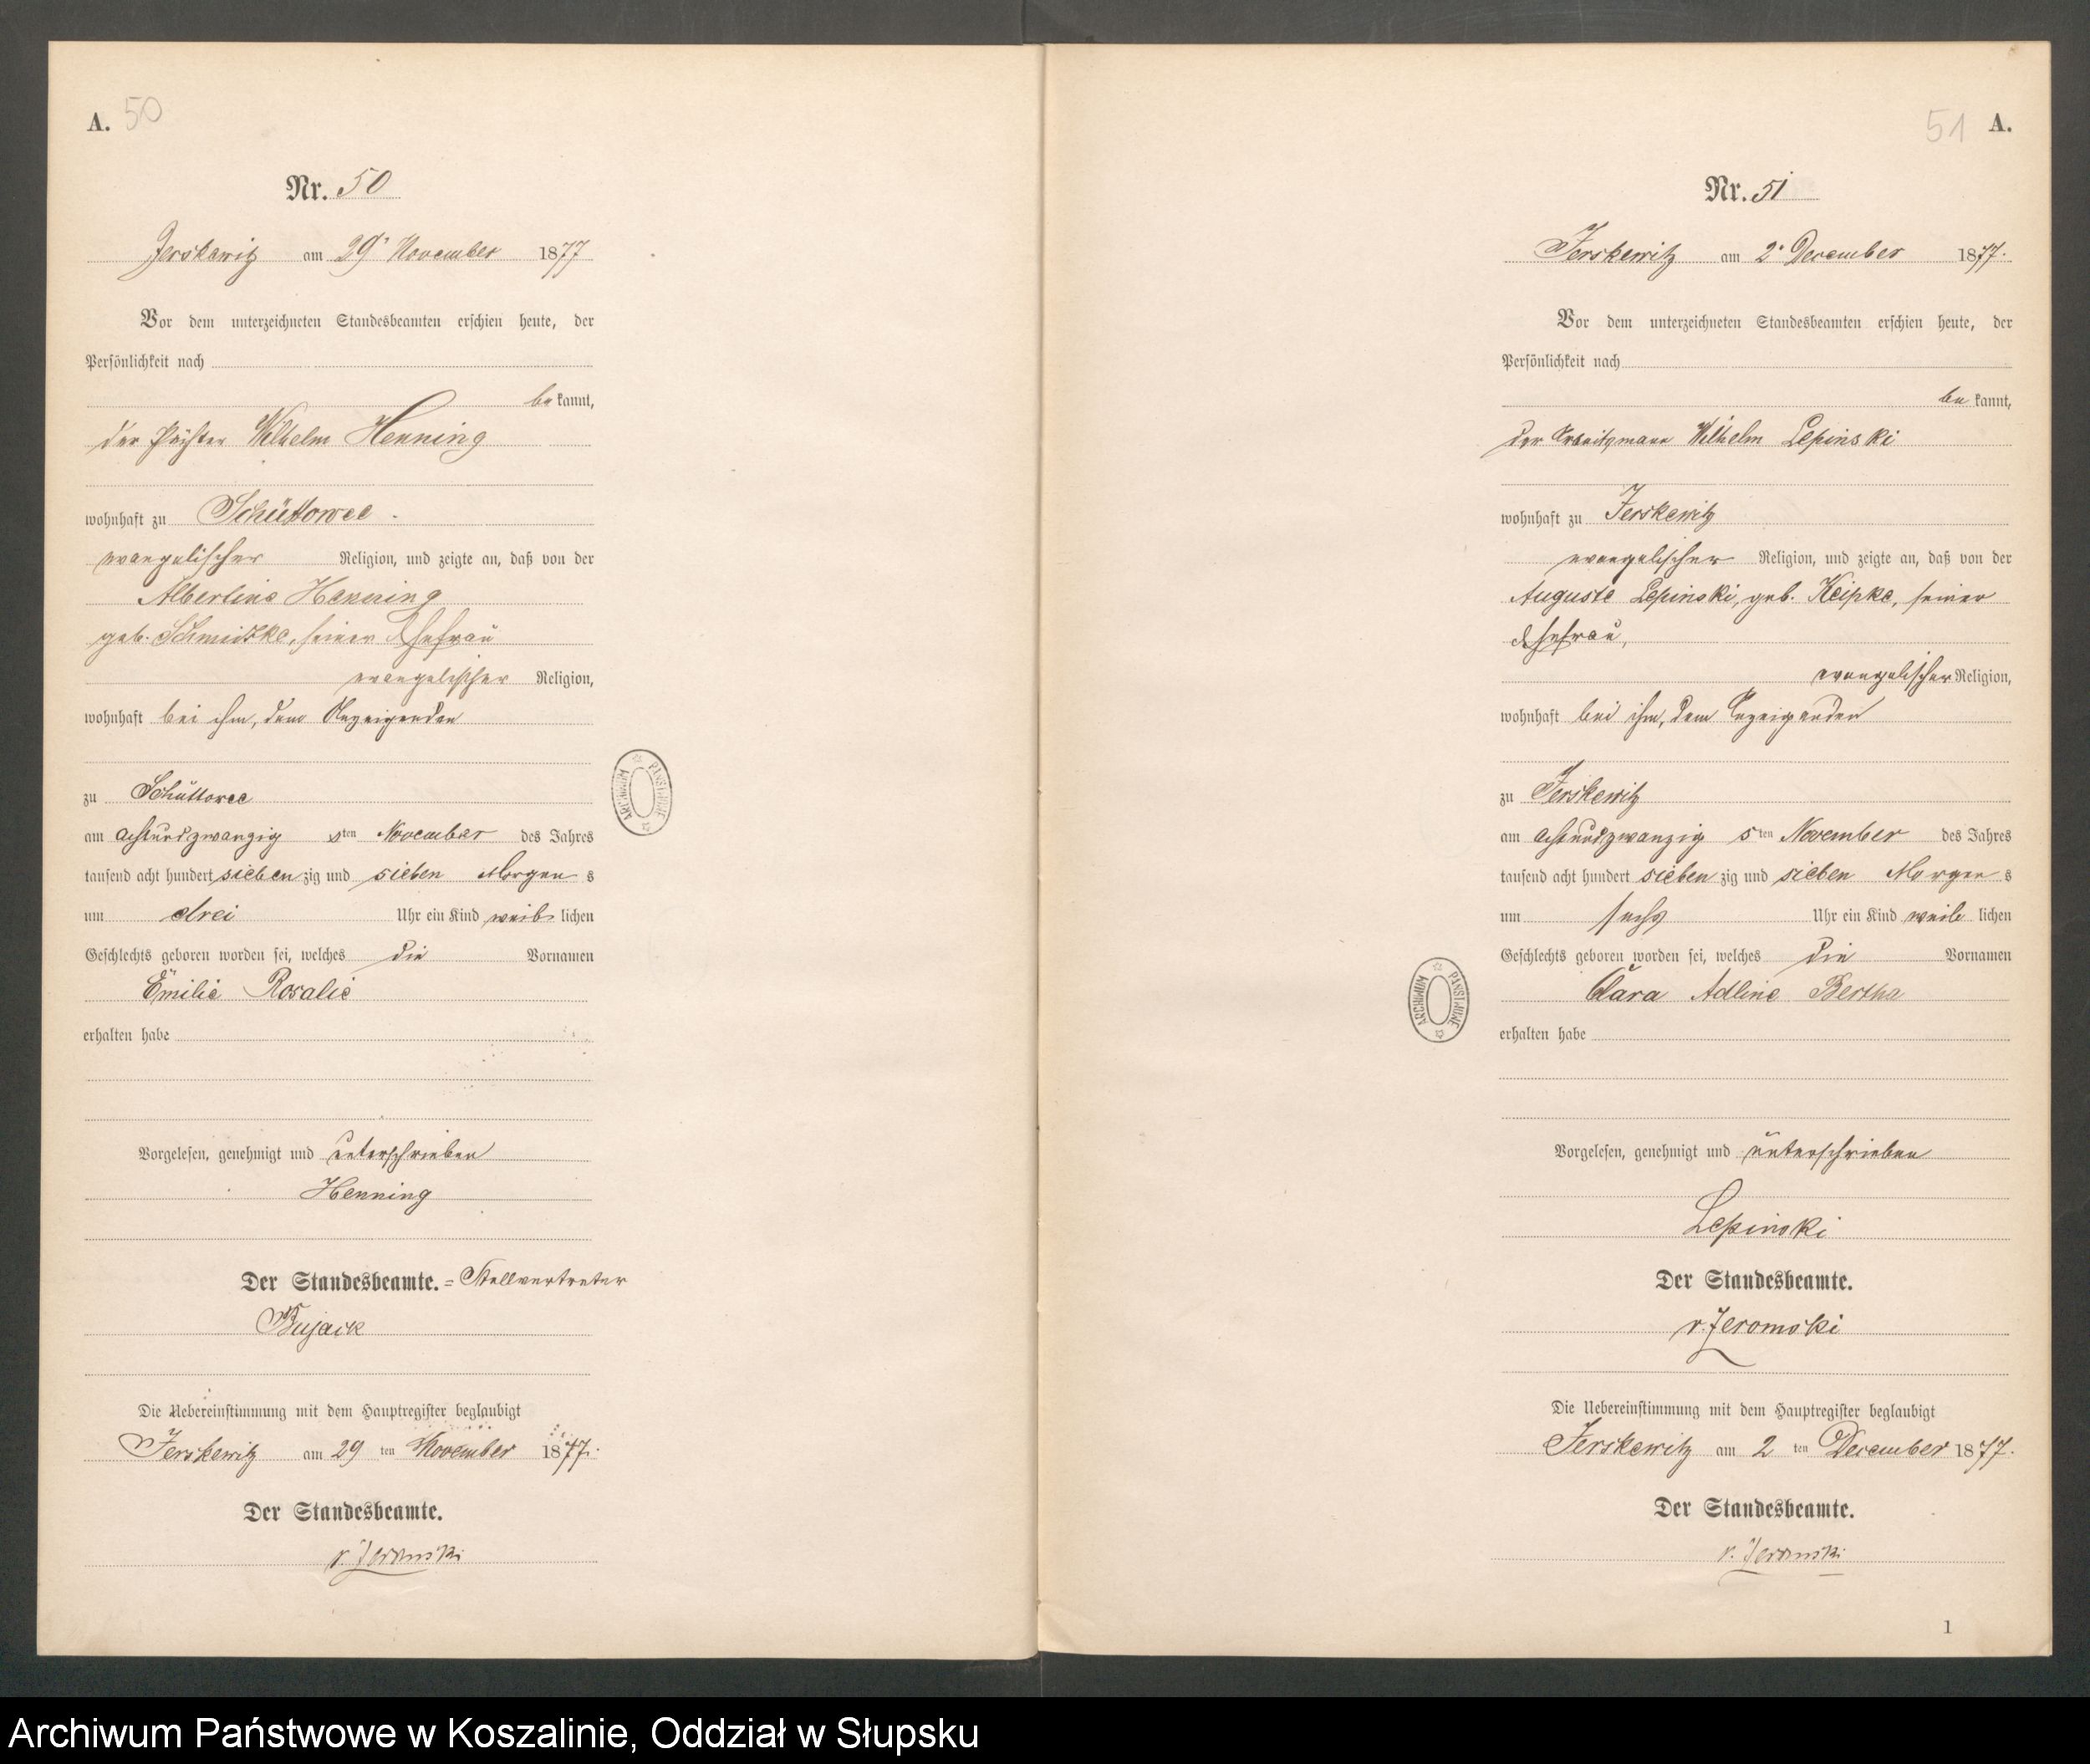 A. 50
Nr. 50
Jerskewitz am 29' November 1877
Vor dem unterzeichneten Standesbeamten erschien heute, der
Persönlichkeit nach
bekannt,
der Pächter Wilhelm Henning
wohnhaft zu Schüttowee.
evangelischer Religion, und zeigte an, daß von der
Albertine Henning
geb. Schmidtke, seiner Ehefrau
evangelischer Religion,
wohnhaft bei ihm, dem Anzeigenden
zu Schüttowee
am achtundzwanzig sten November des Jahres
tausend acht hundert siebenzig und sieben Morgens
um drei Uhr ein Kind weiblichen
Geschlechts geboren worden sei, welches die Vornamen
Emilie Rosalie
erhalten habe
Vorgelesen, genehmigt und unterschrieben
Henning
Der Standesbeamte. = Stellvertreter
Bujack
Die Uebereinstimmung mit dem Hauptregister beglaubigt
Jerskewitz am 29 ten November 1877.
Der Standesbeamte.
v. Jeromski
ARCHIWUM PAŃSTWOWE
51 A.
Nr. 51
Jerskewitz am 2' December 1877.
Vor dem unterzeichneten Standesbeamten erschien heute, der
Persönlichkeit nach
bekannt,
der Arbeitsmann Wilhelm Lepinski
wohnhaft zu Jerskewitz
evangelischer Religion, und zeigte an, daß von der
Auguste Lepinski, geb. Keipke, seiner
Ehefrau,
evangelischer Religion,
wohnhaft bei ihm, dem Anzeigenden
zu Jerskewitz
am achtundzwanzig sten November des Jahres
tausend acht hundert siebenzig und sieben Morgens
um sechs Uhr ein Kind weiblichen
Geschlechts geboren worden sei, welches die Vornamen
Clara Adline Bertha
erhalten habe
Vorgelesen, genehmigt und unterschrieben
Lepinski
Der Standesbeamte.
v. Jeromski
Die Uebereinstimmung mit dem Hauptregister beglaubigt
Jerskewitz am 2 ten December 1877.
Der Standesbeamte.
v. Jeromski
1
ARCHIWUM PAŃSTWOWE
Archiwum Państwowe w Koszalinie, Oddział w Słupsku